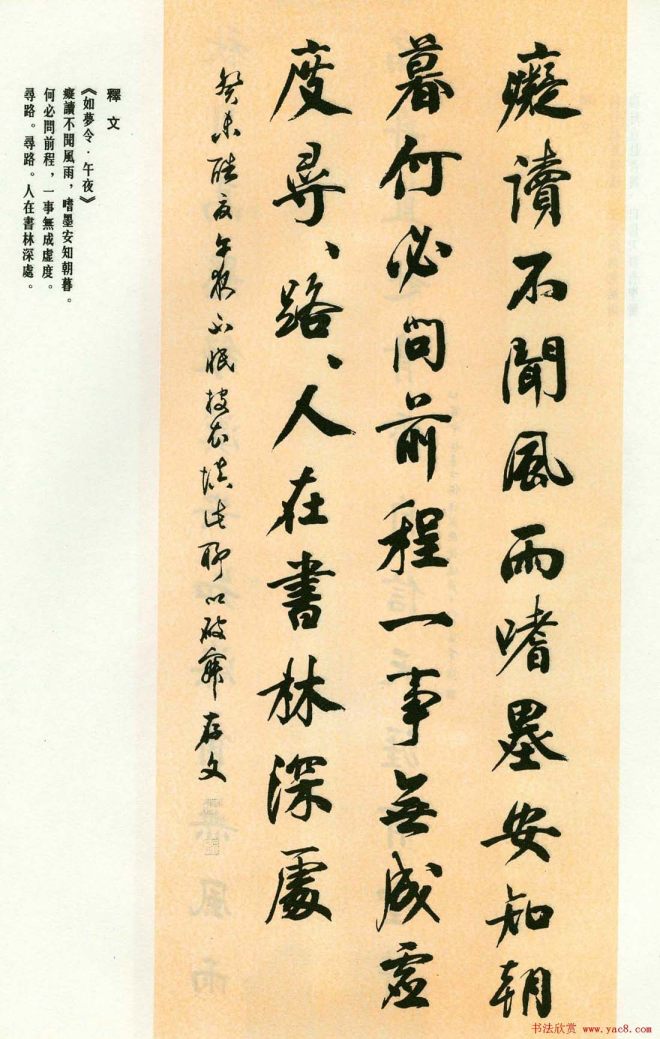 癡讀不聞風雨嗜墨安知朝
暮何必問前程一事無成虛
度尋、路、人在書林深處
癸未酷夜午夜不眠披衣填此聊以破寐存文
釋文
《如夢令·午夜》
癡讀不聞風雨，嗜墨安知朝暮。
何必問前程，一事無成虛度。
尋路。尋路。人在書林深處。
书法欣赏 www.yac8.com